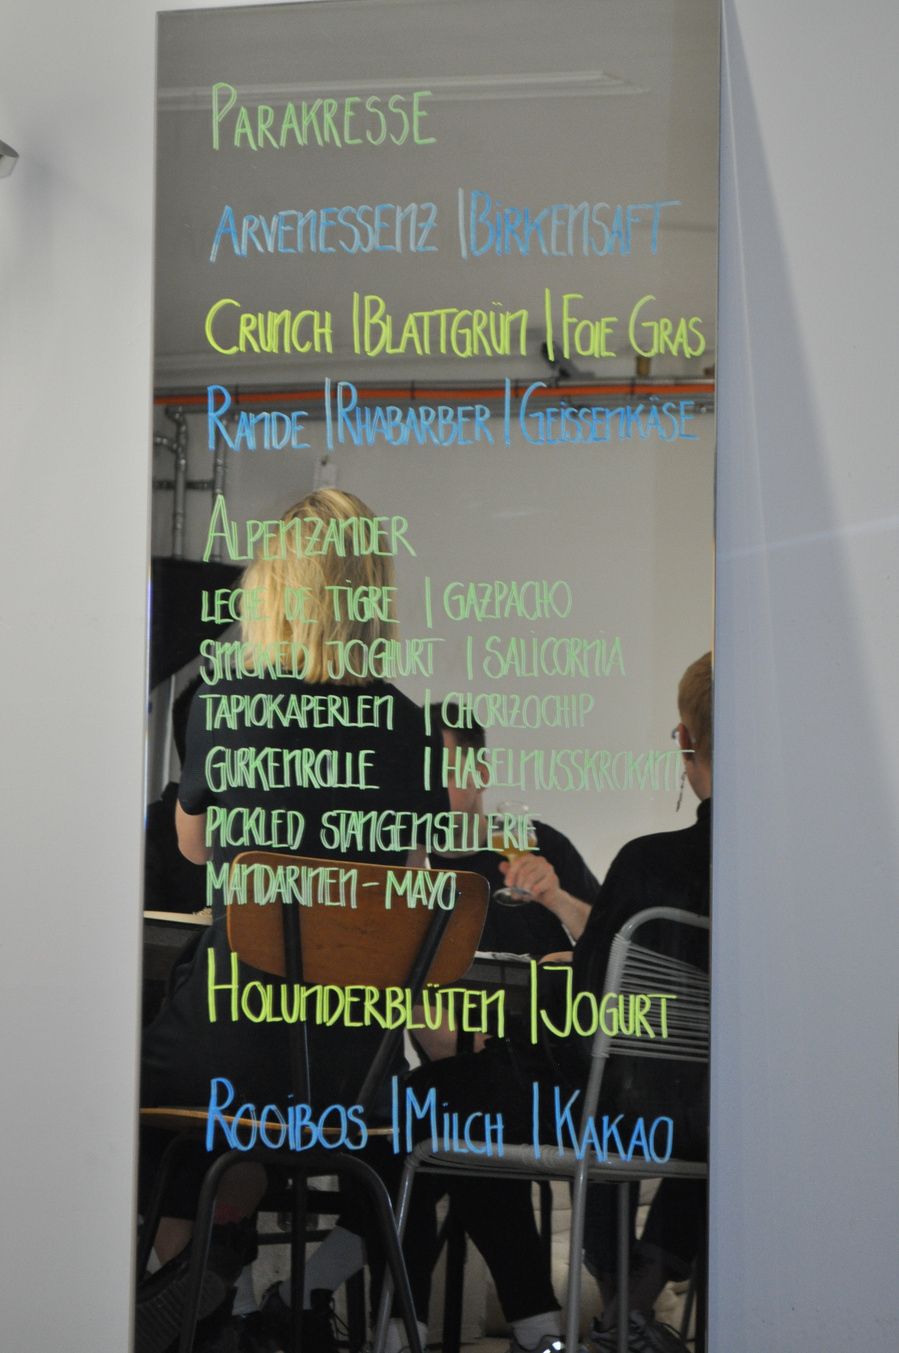 PARAKRESSE
ARVENESSENZ | BIRKENSAFT
CRUNCH | BLATTGRÜN | FOIE GRAS
RANDE | RHABARBER | GEISSENKÄSE
ALPENZANDER
LECHE DE TIGRE | GAZPACHO
SMOKED JOGHURT | SALICORNIA
TAPIOKAPERLEN | CHORIZOCHIP
GURKENROLLE | HASELNUSSKROKANT
PICKLED STANGENSELLERIE
MANDARINEN-MAYO
HOLUNDERBLÜTEN | JOGURT
ROOIBOS | MILCH | KAKAO